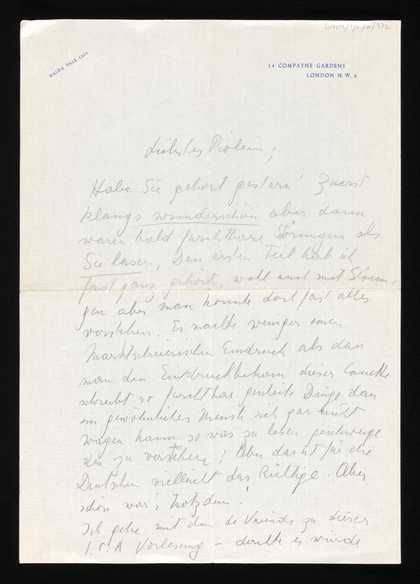 MAIDA VALE
14 COMPAYNE GARDENS
LONDON N.W. 6
Liebster
Habe Sie gehört gestern! Zuerst
klangs wunderschön aber dann
waren bald furchtbare Störungen als
Sie lasen, den ersten Teil hab ich
fast ganz gehört, wohl auch mit Störun-
gen aber man konnte doch fast alles
verstehen. Es machte weniger einen
Marktschreierischen Eindruck als dass
man den Eindruck bekam dieser
schreibt so furchtbar Dinge dass
ein gewöhnlicher Mensch sich gar nicht
wagen kann so was zu lesen geschweige
den zu verstehen! Aber das ist für die
Deutschen vielleicht das Richtige. Aber
schön war's trotzdem!
Ich gehe mit den de Vriends zu dieser
Vorlesung – dachte es würde